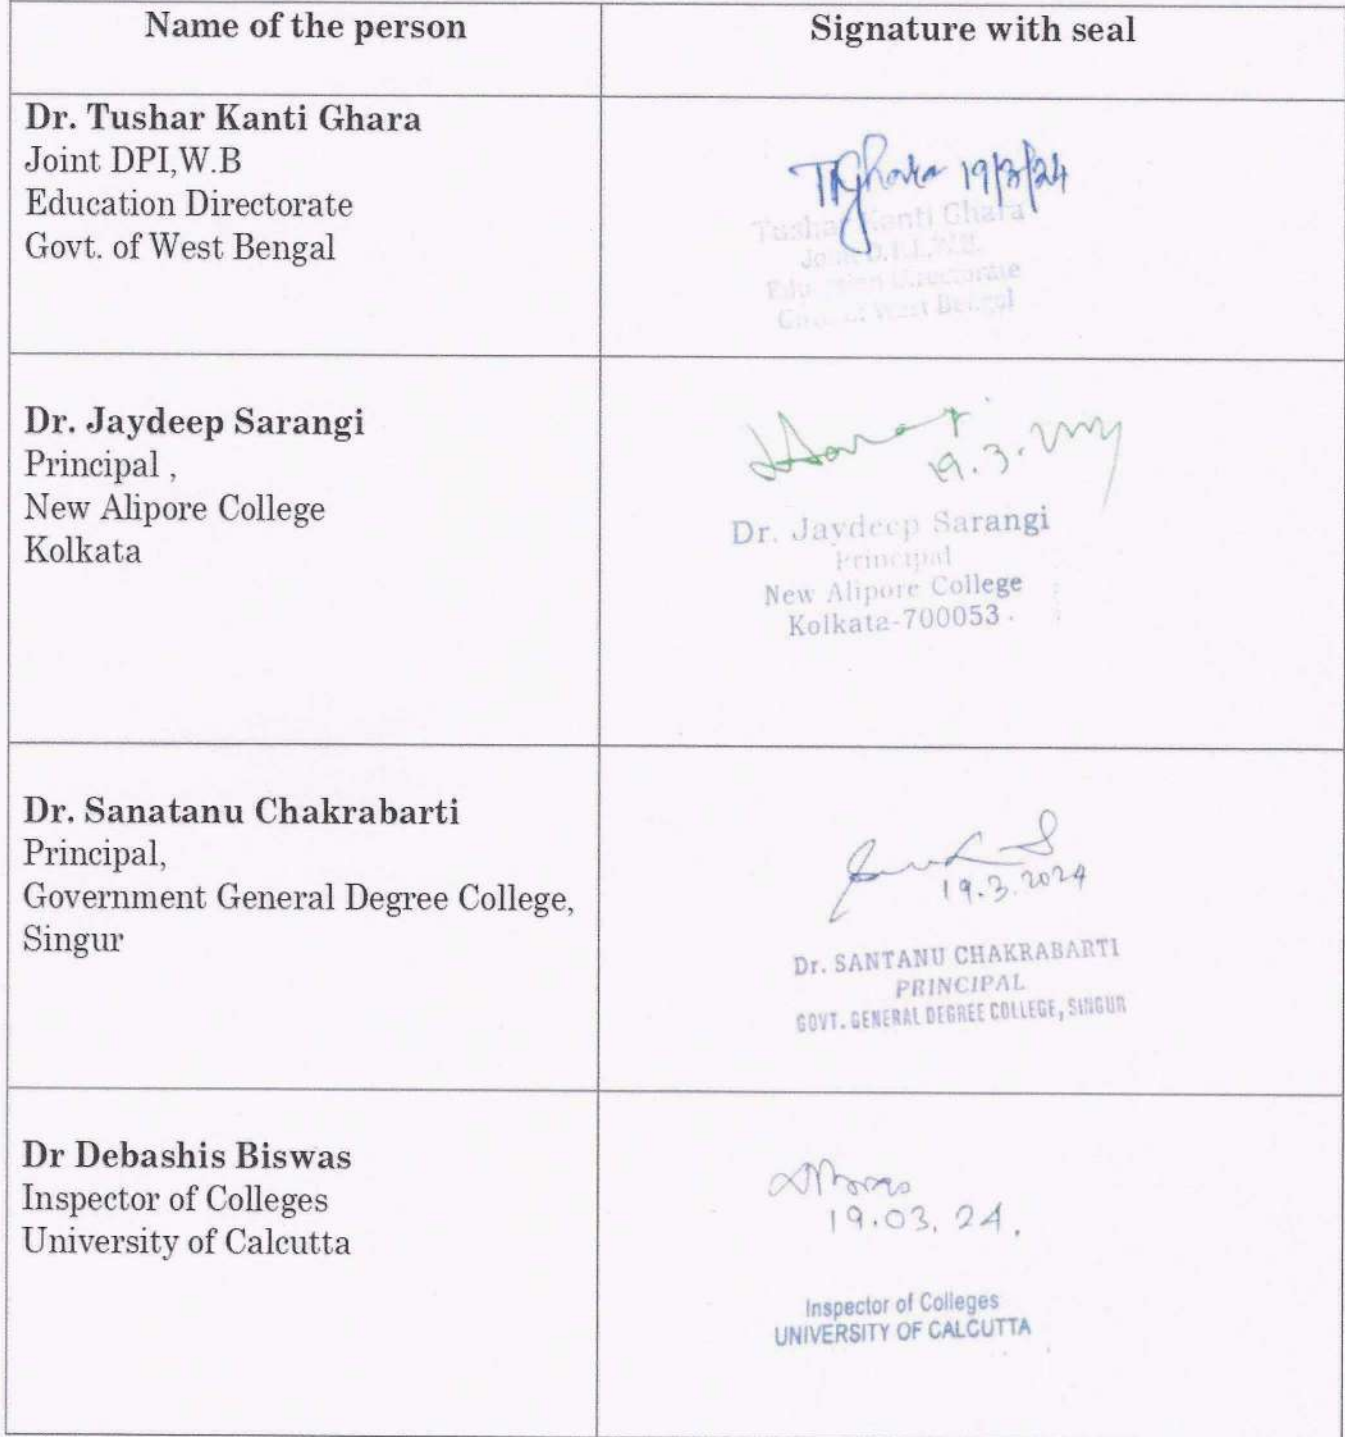 Name of the person
Signature with seal
Dr. Tushar Kanti Ghara
Joint DPI,W.B
Education Directorate
Govt. of West Bengal
TKGhara 19/3/24
Tushar Kanti Ghara
Education Directorate
Govt. of West Bengal
Dr. Jaydeep Sarangi
Principal ,
New Alipore College
Kolkata
19.3.
Dr. Jaydeep Sarangi
Principal
New Alipore College
Kolkata-700053.
Dr. Sanatanu Chakrabarti
Principal,
Government General Degree College,
Singur
19.3.2024
Dr. SANTANU CHAKRABARTI
PRINCIPAL
GOVT. GENERAL DEGREE COLLEGE, SINGUR
Dr Debashis Biswas
Inspector of Colleges
University of Calcutta
19.03.24.
Inspector of Colleges
UNIVERSITY OF CALCUTTA